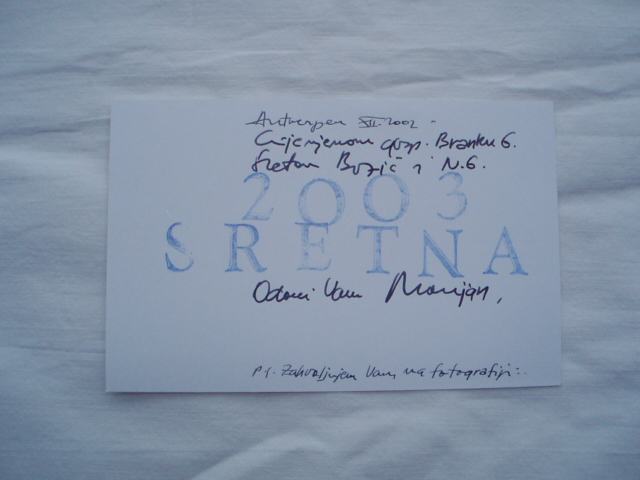 Antwerpen XII. 2002 -
Cijenjenom gosp. Branku G.
Sretan Božić i N.G.
2003
SRETNA
Odani Vam Marijan,
P.S. Zahvaljujem Vam na fotografiji:.